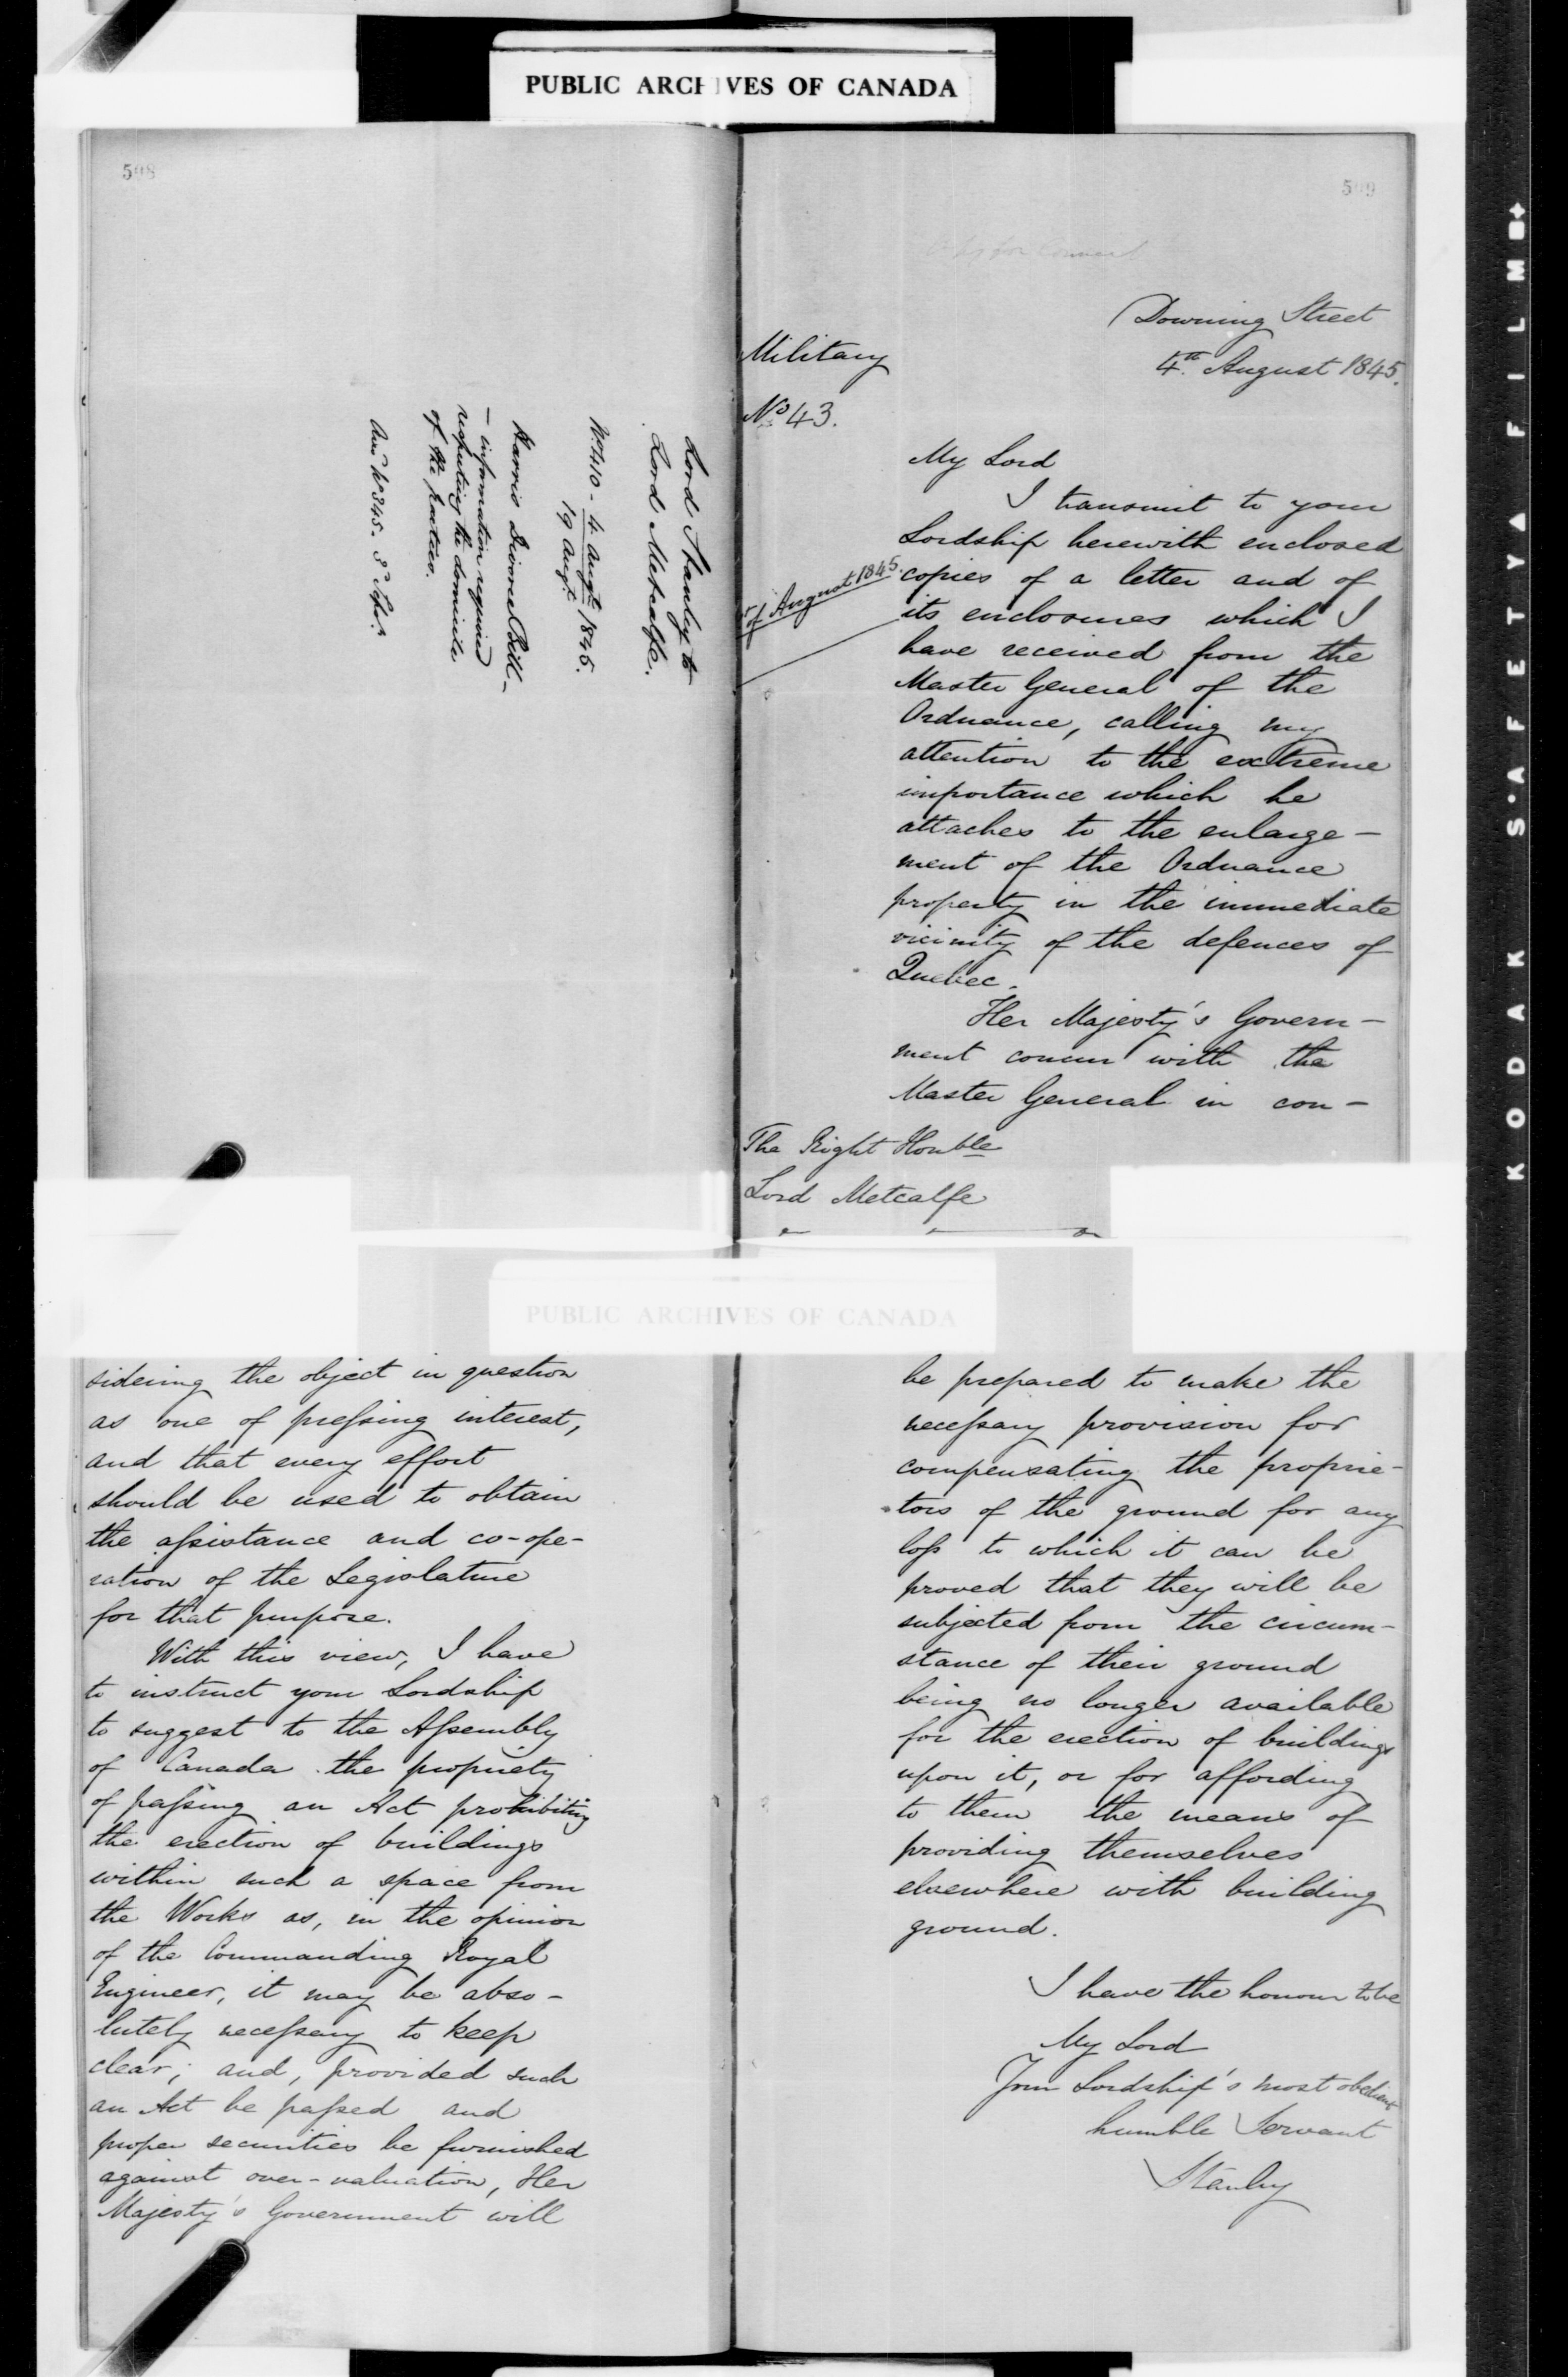 PUBLIC ARCHIVES OF CANADA
598
Lord Stanley to
Lord Metcalfe.
No. 410 - 4 Augt. 1845.
19 Augt.
Harris Divorce Bill -
- information required
respecting the domicile
of the parties.
Ansd No 345. 8
599
Copy for Council
Downing Street
4th August 1845.
Military
No 43.
My Lord
I transmit to your
Lordship herewith enclosed
copies of a letter and of
August 1845.
its enclosures which I
have received from the
Master General of the
Ordnance, calling my
attention to the extreme
importance which he
attaches to the enlarge-
ment of the Ordnance
property in the immediate
vicinity of the defences of
Quebec.
Her Majesty's Govern-
ment concur with the
Master General in con-
The Right Honble
Lord Metcalfe
PUBLIC ARCHIVES OF CANADA
sidering the object in question
as one of pressing interest,
and that every effort
should be used to obtain
the assistance and co-ope-
ration of the Legislature
for that purpose.
With this view, I have
to instruct your Lordship
to suggest to the Assembly
of Canada the propriety
of passing an Act prohibiting
the erection of buildings
within such a space from
the Works as, in the opinion
of the Commanding Royal
Engineer, it may be abso-
lutely necessary to keep
clear; and, provided such
an Act be passed and
proper securities be furnished
against over-valuation, Her
Majesty's Government will
be prepared to make the
necessary provision for
compensating the proprie-
tors of the ground for any
loss to which it can be
proved that they will be
subjected from the circum-
stance of their ground
being no longer available
for the erection of buildings
upon it, or for affording
to them the means of
providing themselves
elsewhere with building
ground.
I have the honour to be
My Lord
Your Lordship's most obedient
humble Servant
Stanley
KODAK SAFETY FILM